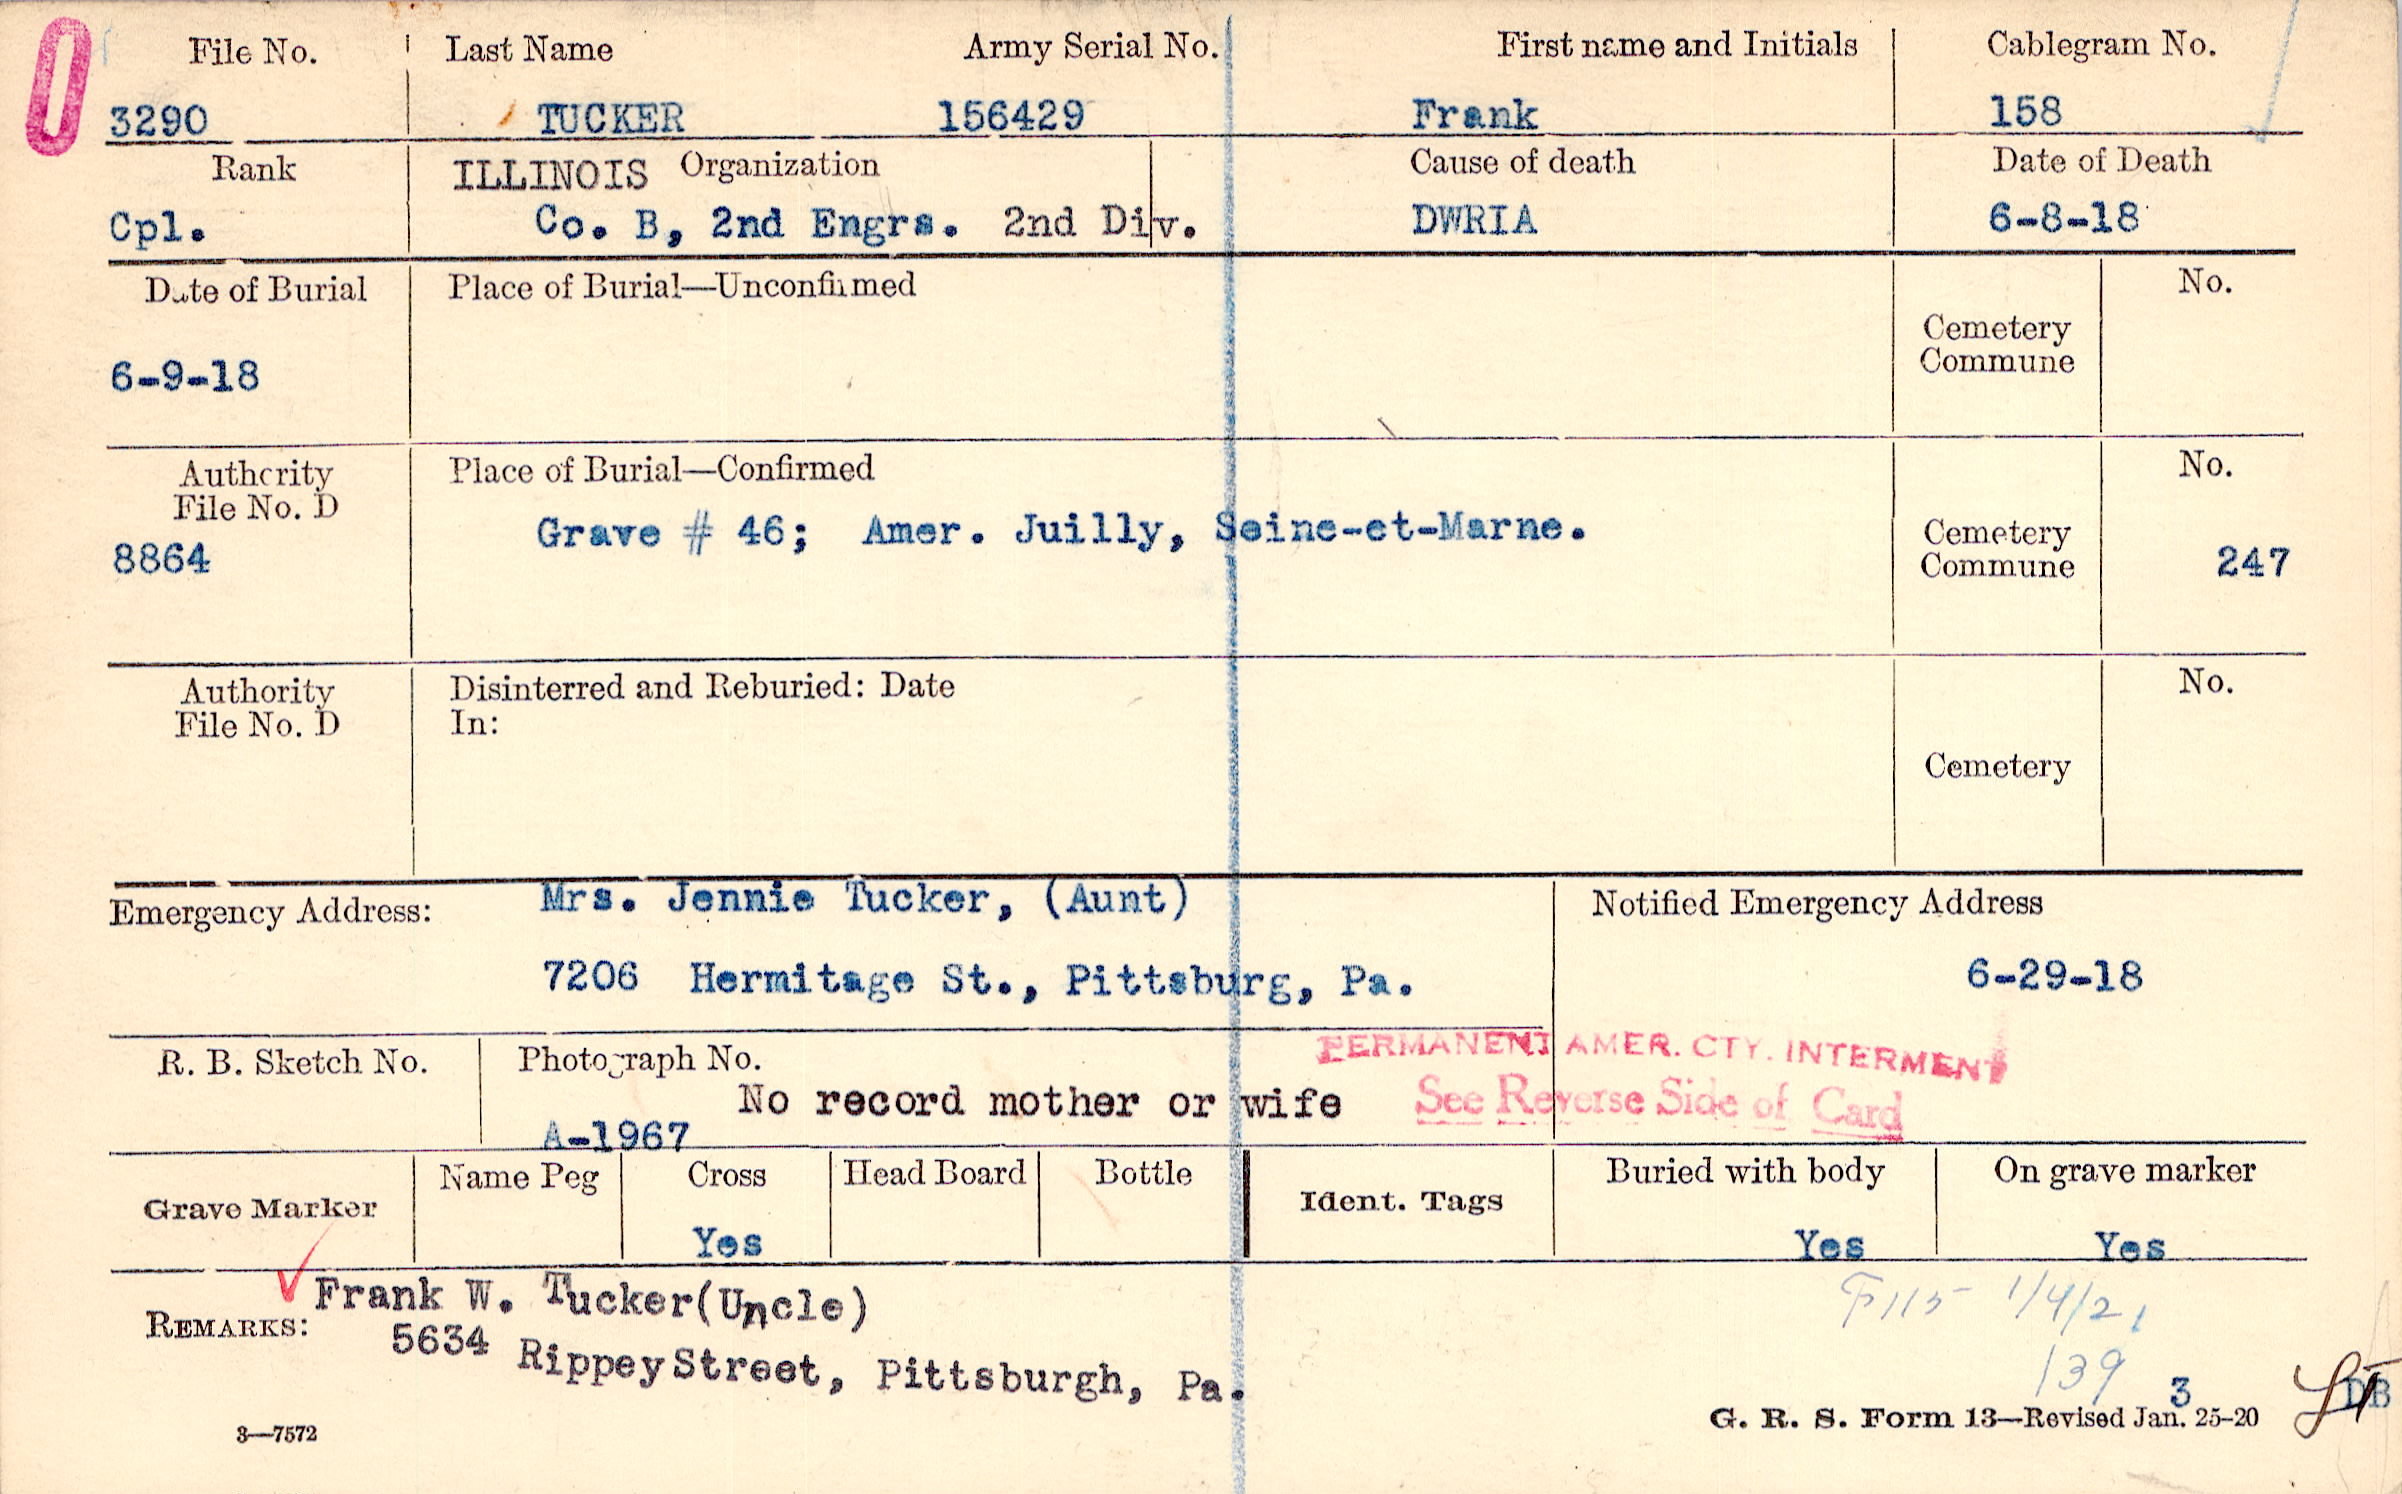 0
File No. Last Name Army Serial No. First name and Initials Cablegram No.
3290 TUCKER 156429 Frank 158
Rank ILLINOIS Organization Cause of death Date of Death
Cpl. Co. B, 2nd Engrs. 2nd Div. DWRIA 6-8-18
Date of Burial Place of Burial—Unconfirmed No.
Cemetery
Commune
6-9-18
Authority Place of Burial—Confirmed No.
File No. D
Grave # 46; Amer. Juilly, Seine-et-Marne. Cemetery
8864 Commune 247
Authority Disinterred and Reburied: Date No.
File No. D In:
Cemetery
Emergency Address: Mrs. Jennie Tucker, (Aunt) Notified Emergency Address
7206 Hermitage St., Pittsburg, Pa. 6-29-18
PERMANENT AMER. CTY. INTERMENT
R. B. Sketch No. Photograph No.
No record mother or wife See Reverse Side of Card
A-1967
Grave Marker Name Peg Cross Head Board Bottle Ident. Tags Buried with body On grave marker
Yes Yes Yes
Frank W. Tucker(Uncle)
REMARKS: 5634 Rippey Street, Pittsburgh, Pa.
1/4/21
139
3
3—7572 G. R. S. Form 13—Revised Jan. 25-20 DB